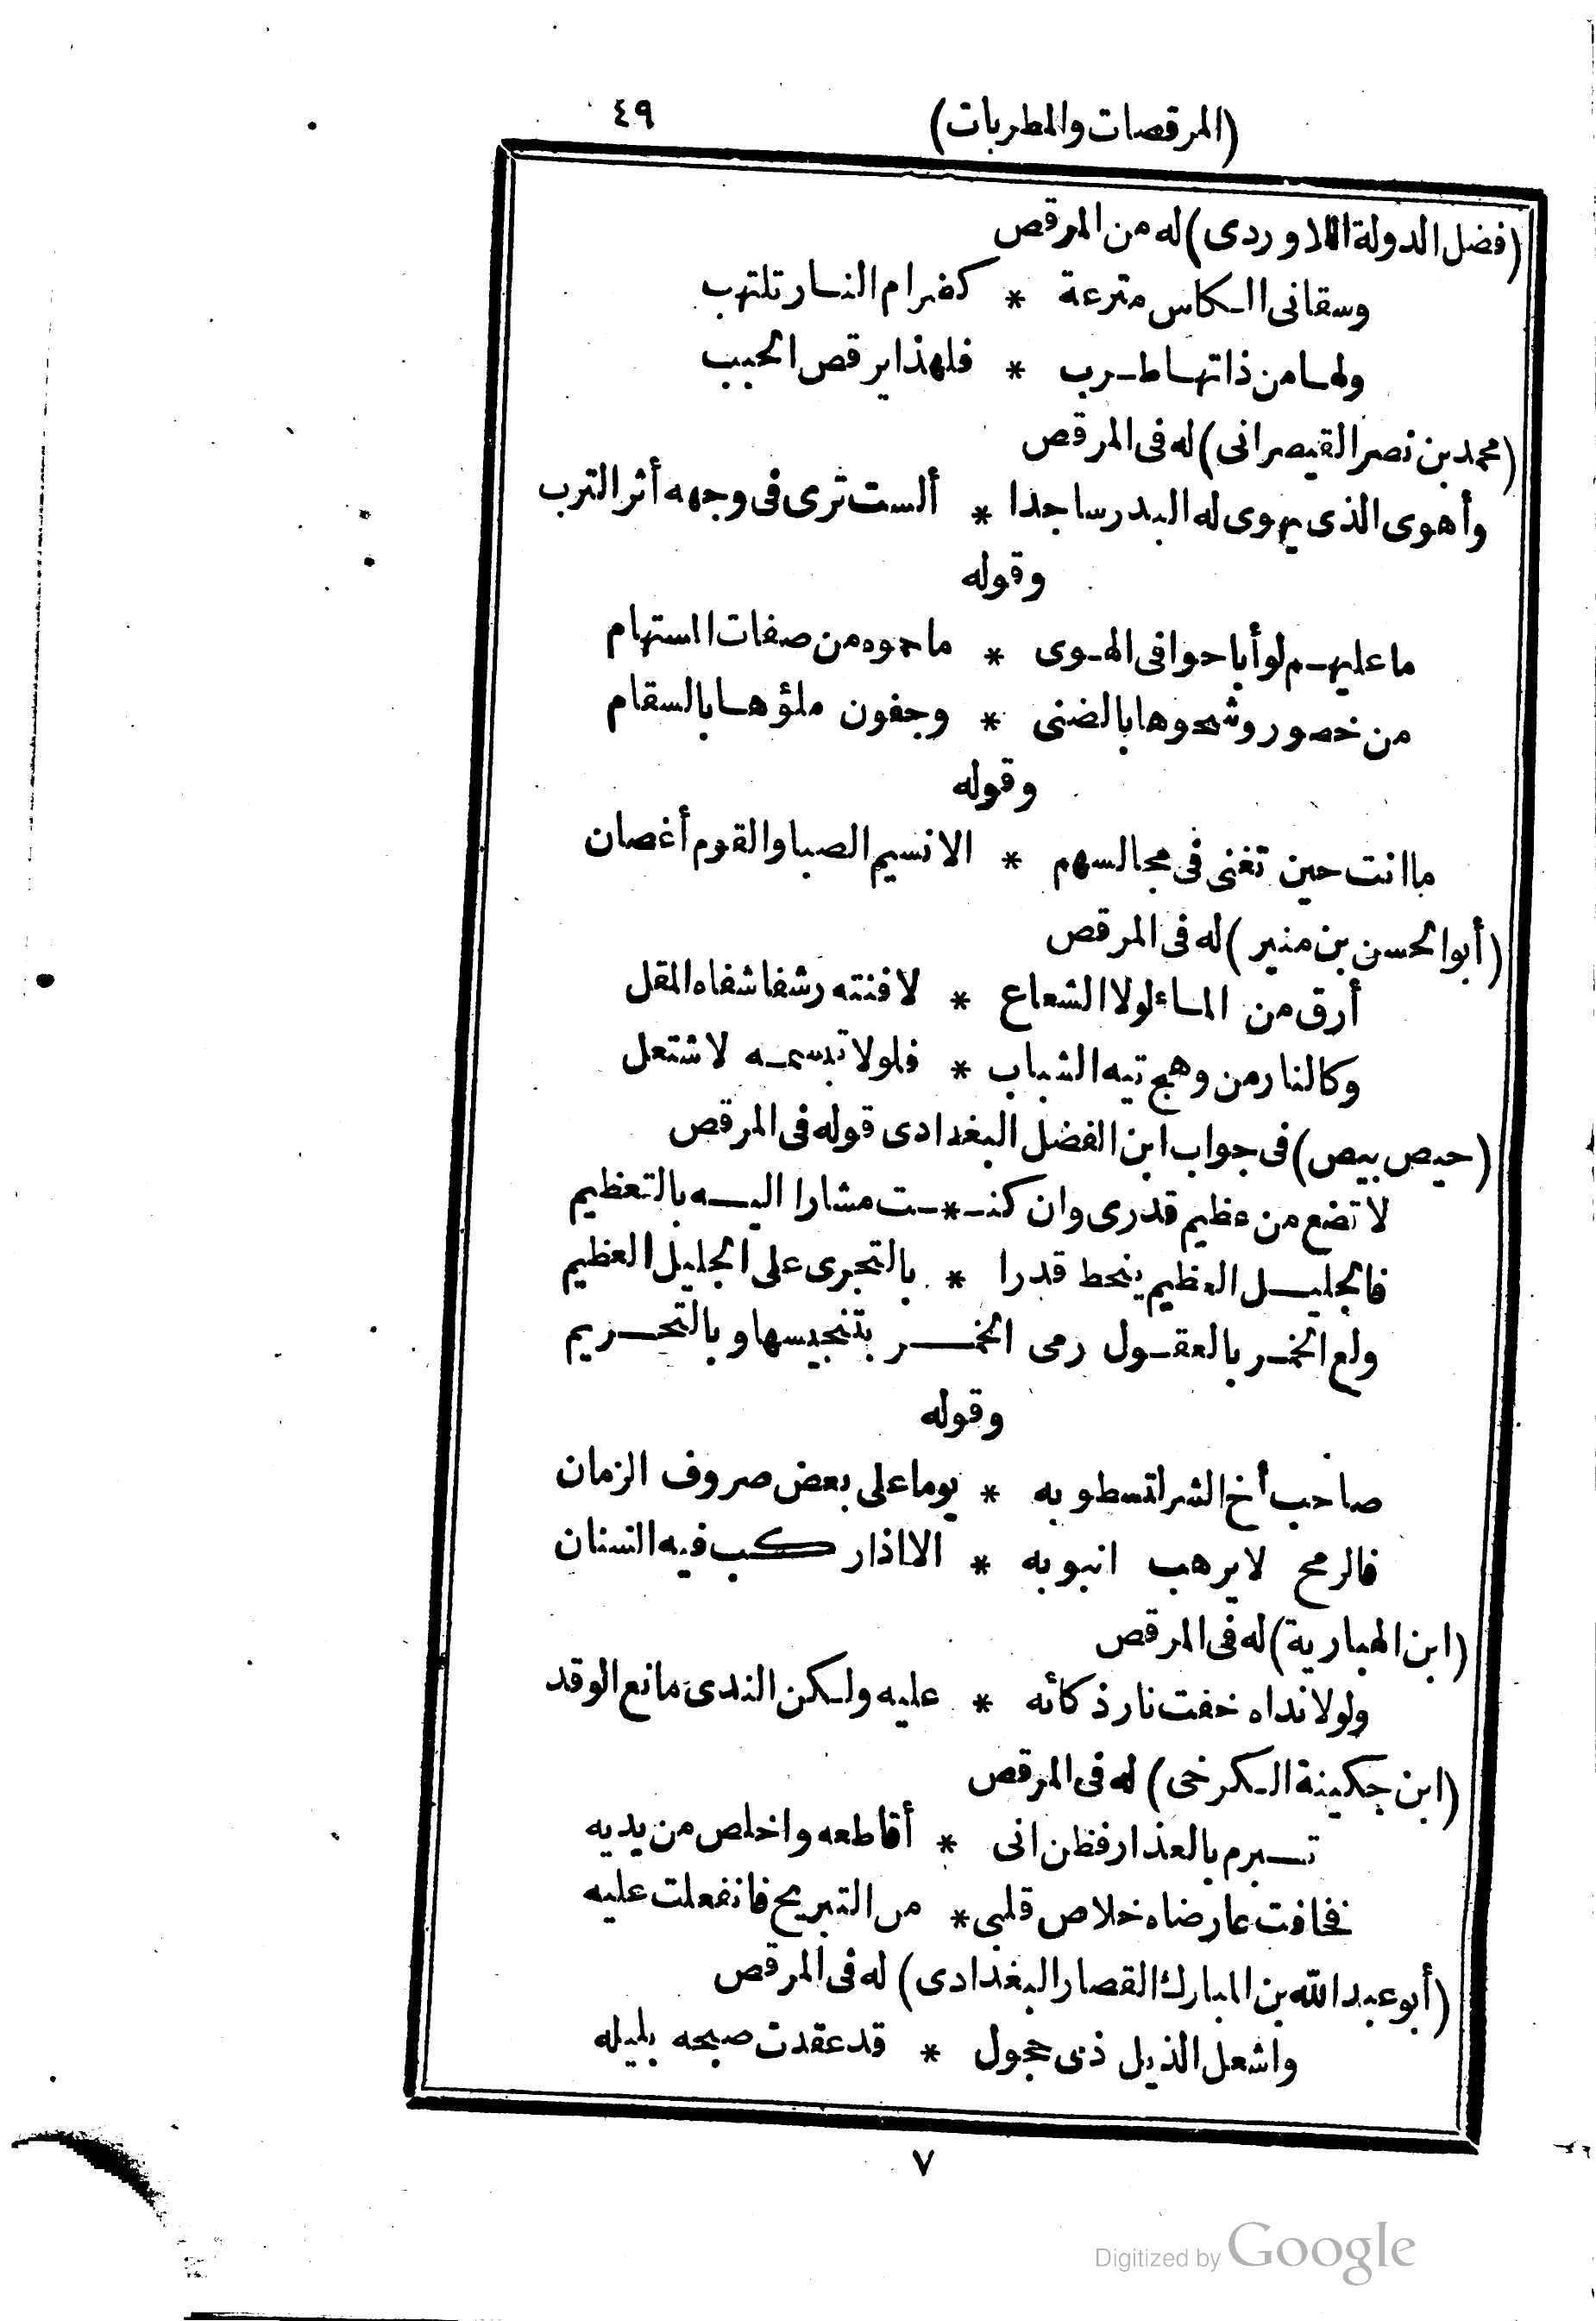 (المرقصات والمطربات) ٤٩
(فضل الدولة اللاوردى) له من المرقص
وسقانى الكاس مترعة * كضرام النار تلتهب
ولها من ذاتها طرب * فلهذا يرقص الحبب
(محمد بن نصر القيصرانى) له فى المرقص
وأهوى الذى يهوى له البدر ساجدا * ألست ترى فى وجهه أثر الترب
وقوله
ما عليهم لو أباحوا فى الهوى * ما حموه من صفات المستهام
من خصور وشحوها بالضنى * وجفون ملؤها بالسقام
وقوله
ما انت حين تغنى فى مجالسهم * الا نسيم الصبا والقوم أغصان
(أبو الحسن بن منير) له فى المرقص
أرق من الماء لولا الشعاع * لافنته رشفا شفاه المقل
وكالنار من وهج تيه الشباب * فلولا تبسمه لاشتعل
(حيص بيص) فى جواب ابن الفضل البغدادى قوله فى المرقص
لا تضع من عظيم قدرى وان كنـ * ـت مشارا اليه بالتعظيم
فالجليل العظيم ينحط قدرا * بالتجرى على الجليل العظيم
ولع الخمر بالعقول رمى الخمر بتنجيسها وبالتحريم
وقوله
صاحب أخ الشر لتسطو به * يوما على بعض صروف الزمان
فالرمح لا يرهب انبوبه * الا اذا ركب فيه السنان
(ابن الهبارية) له فى المرقص
ولولا نداه خفت نار ذكائه * عليه ولكن الندى مانع الوقد
(ابن جكينة الكرخى) له فى المرقص
تبرم بالعذار فظن انى * أقاطعه واخلص من يديه
فخافت عارضاه خلاص قلبى * من التبريح فانفعلت عليه
(أبو عبد الله بن المبارك القصار البغدادى) له فى المرقص
واشعل الذيل ذى حجول * قد عقدت صبحه بليله
٧
Digitized by Google